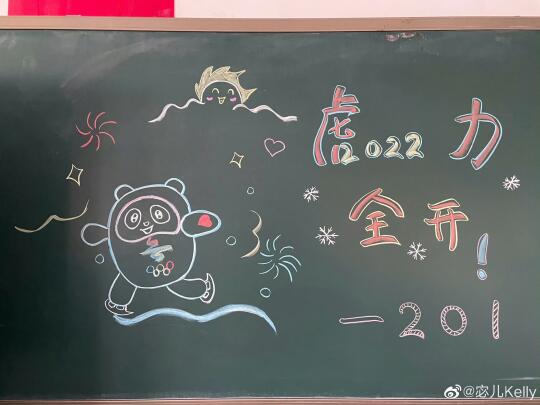 虎2022力
全开！
一201
@宓儿Kelly